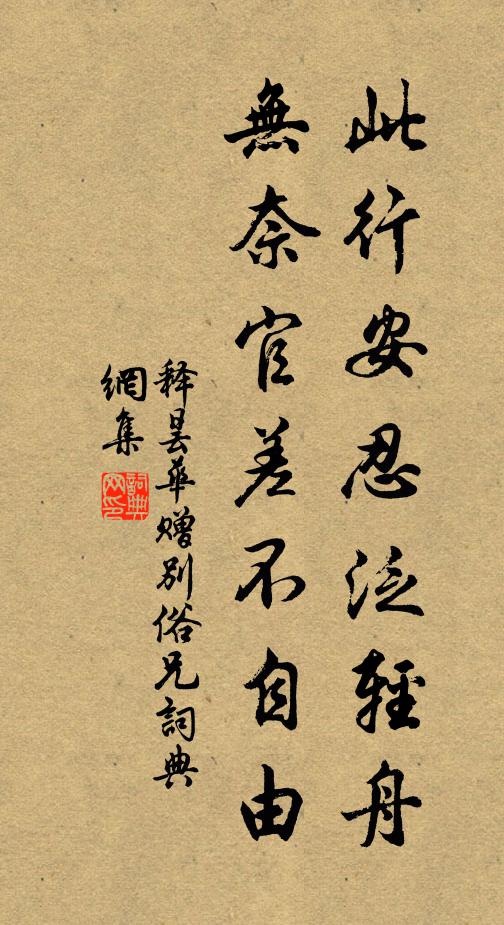 此行安忍泛輕舟
無奈官差不自由
释曇華赠别俗兄詞典
網集
詞典
网印